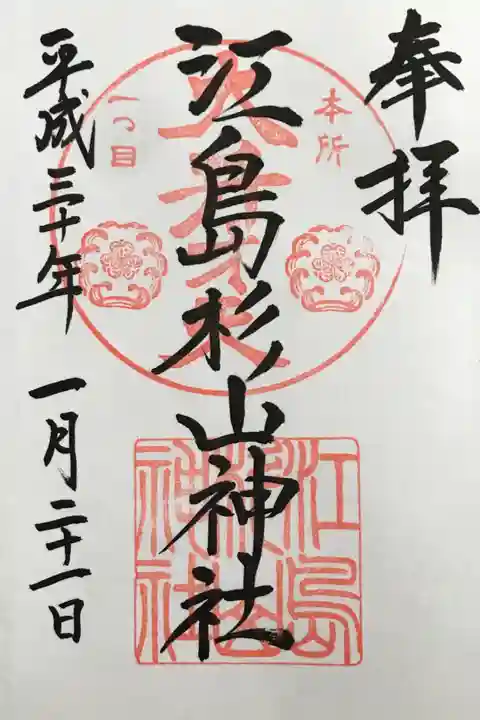 奉拝
本所
一つ目
江島杉山神社
平成三十年 一月二十一日
江島杉山神社